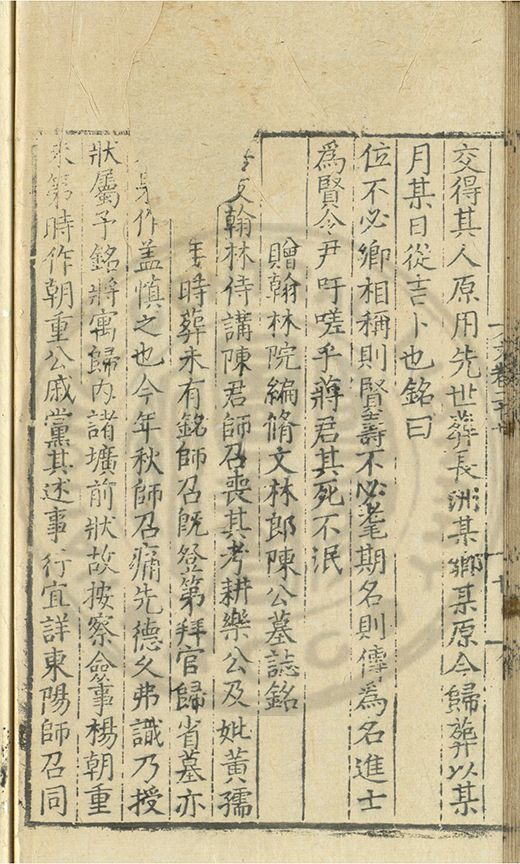 交得其人原用先世葬長洲某鄉某原今歸葬以某
月某日從吉卜也銘曰
位不必鄉相稱則賢壽不必耄期名則傳為名進士
為賢令尹吁嗟乎蔣君其死不泯
贈翰林院編脩文林郎陳公墓誌銘
友翰林侍講陳君師召喪其考耕樂公及妣黃孺
年時葬未有銘師召既登第拜官歸省墓亦
作盖慎之也今年秋師召痛先德久弗識乃授
狀屬予銘將寓歸内諸壙前狀故按察僉事楊朝重
未第時作朝重公戚黨其述事行宜詳東陽師召同